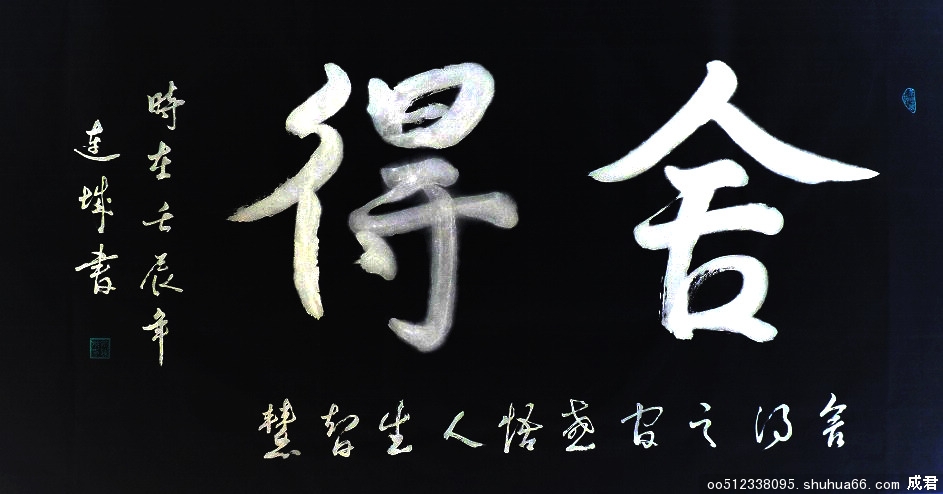 舍得
舍得之間盡悟人生智慧
時在壬辰年
連城書
oo512338095. shuhua66. com 成君